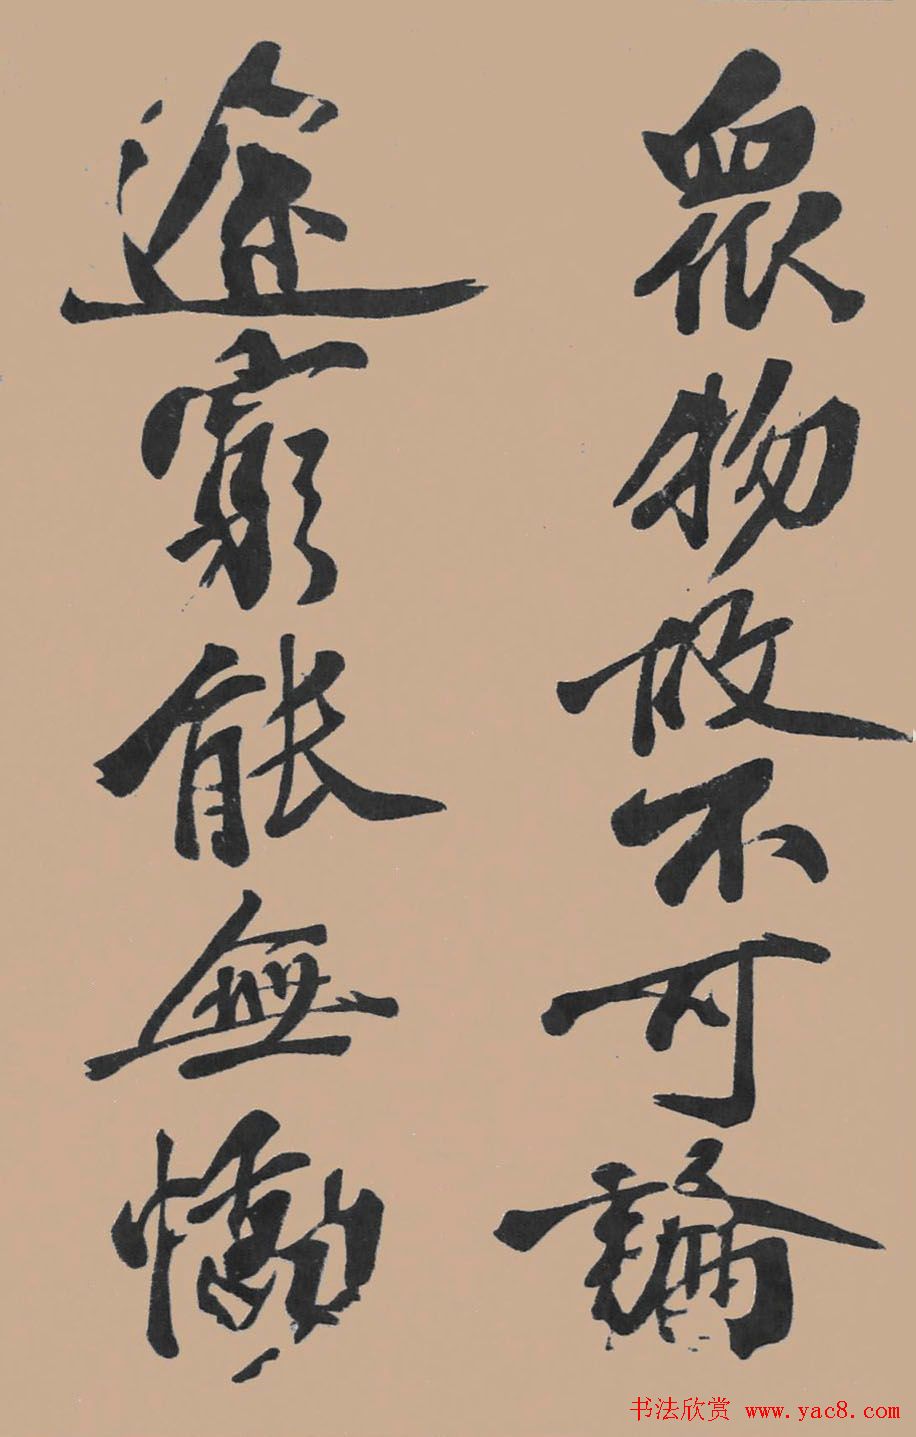 眾物故不可論
途窮能無慟
书法欣赏 www.yac8.com